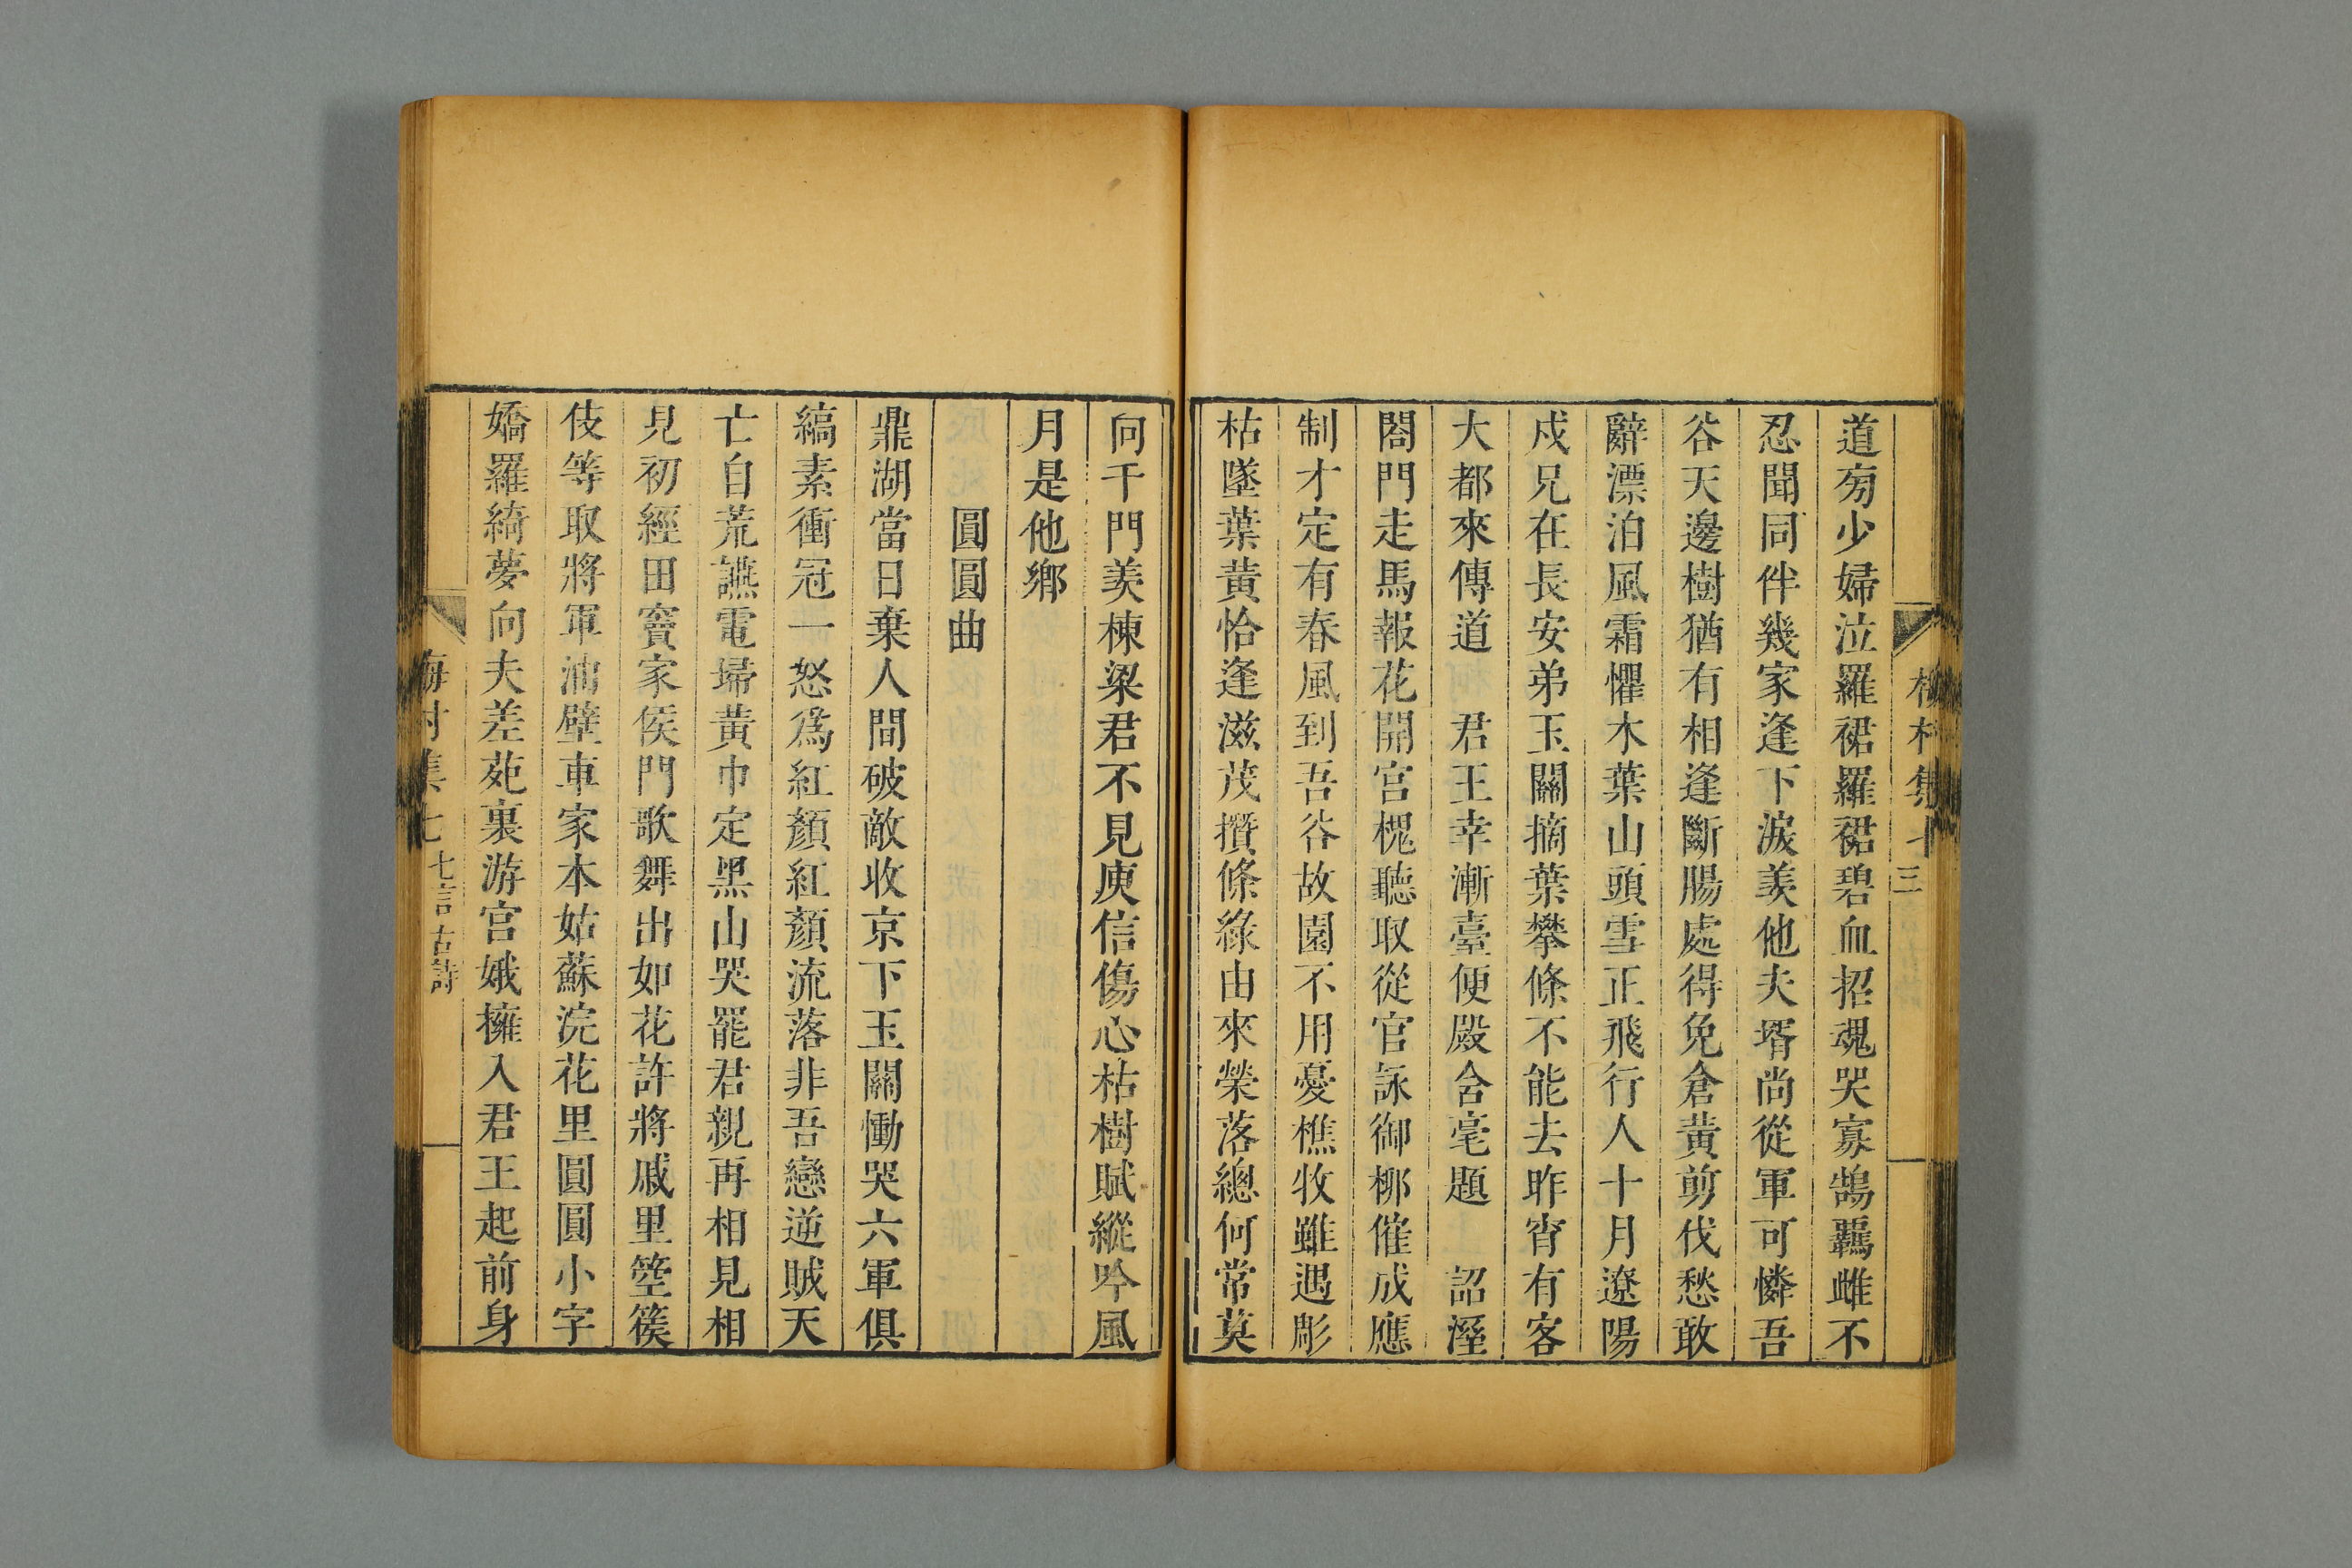 梅村集 三
道旁少婦泣羅裙羅裙碧血招魂哭寡鵠羈雌不
忍聞同伴幾家逢下淚羨他夫壻尚從軍可憐吾
谷天邊樹猶有相逢斷腸處得免倉黄剪伐愁敢
辭漂泊風霜懼木葉山頭雪正飛行人十月遼陽
戍兄在長安弟玉關摘葉攀條不能去昨宵有客
大都來傳道 君王幸漸臺便殿含毫題 詔溼
閤門走馬報花開宫槐聽取從官詠御柳催成應
制才定有春風到吾谷故園不用憂樵牧雖遇彫
枯墜葉黄恰逢滋茂攢條綠由來榮落總何常莫
向千門羨棟梁君不見庾信傷心枯樹賦縱吟風
月是他鄉
圓圓曲
鼎湖當日棄人間破敵收京下玉關慟哭六軍俱
縞素衝冠一怒為紅顏紅顏流落非吾戀逆賊天
亡自荒讌電埽黄巾定黑山哭罷君親再相見相
見初經田竇家侯門歌舞出如花許將戚里箜篌
伎等取將軍油壁車家本姑蘇浣花里圓圓小字
嬌羅綺夢向夫差苑裏游宫娥擁入君王起前身
梅村集七 七言古詩